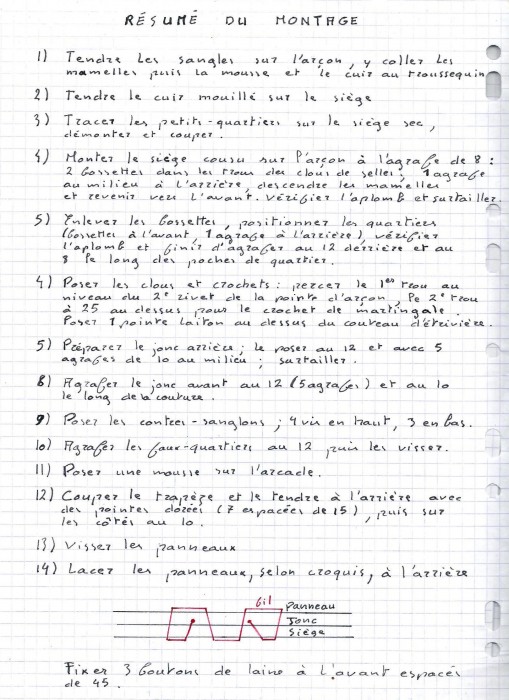 RÉSUMÉ DU MONTAGE
1) Tendre les sangles sur l'arçon, y coller les
mamelles puis la mousse et le cuir au troussequin
2) Tendre le cuir mouillé sur le siège
3) Tracer les petits-quartiers sur le siège sec,
démonter et couper.
4) Monter le siège cousu sur l'arçon à l'agrafe de 8 :
2 bossettes dans les trous des clous de selle, 1 agrafe
au milieu à l'arrière, descendre les mamelles
et revenir vers l'avant. Vérifier l'aplomb et surtailler.
5) Enlever les bossettes, positionner les quartiers
(bossettes à l'avant, 1 agrafe à l'arrière), vérifier
l'aplomb et finir d'agrafer au 12 derrière et au
8 le long des poches de quartier.
4) Poser les clous et crochets : percer le 1er trou au
niveau du 2e rivet de la pointe d'arçon, le 2e trou
à 25 au dessus pour le crochet de martingale.
Poser 1 pointe laiton au dessus du couteau d'étrivière.
5) Préparer le jonc arrière ; le poser au 12 et avec 5
agrafes de 10 au milieu ; surtailler.
8) Agrafer le jonc avant au 12 (5 agrafes) et au 10
le long de la couture.
9) Poser les contre-sanglons ; 4 vis en haut, 3 en bas.
10) Agrafer les faux-quartiers au 12 puis les visser.
11) Poser une mousse sur l'arcade.
12) Couper le trapèze et le tendre à l'arrière avec
des pointes dorées (7 espacées de 15), puis sur
les côtés au 10.
13) Visser les panneaux
14) Lacer les panneaux, selon croquis, à l'arrière
fil Panneau
Jonc
Siège
Fixer 3 boutons de laine à l'avant espacés
de 45.